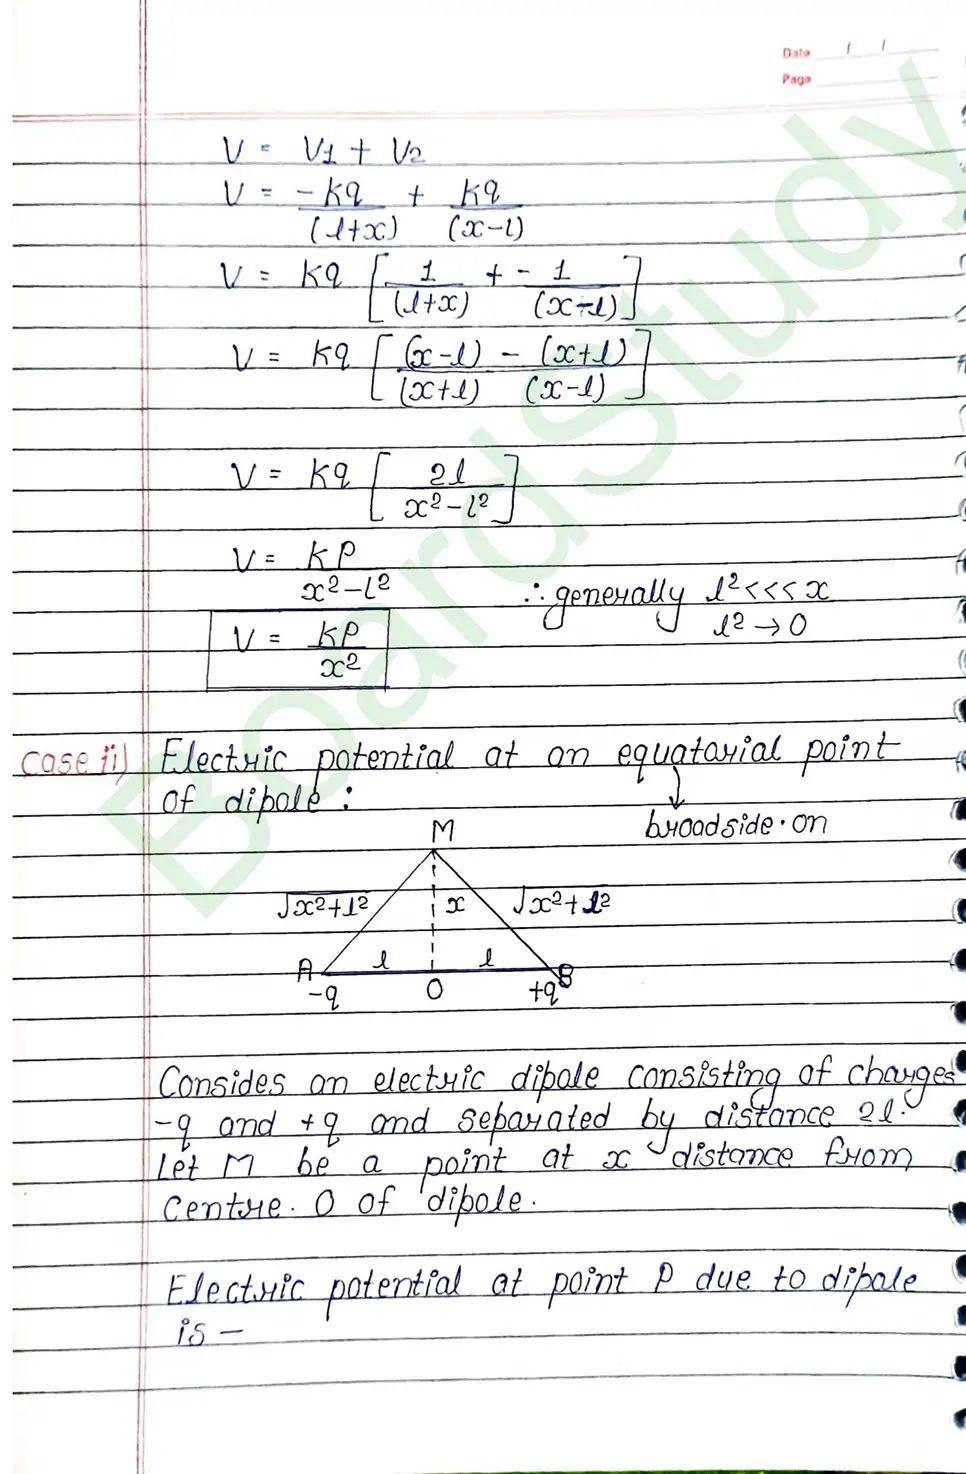 Date / /
Page
V = V1 + V2
V = -kq/(l+x) + kq/(x-l)
V = kq [ 1/(l+x) + - 1/(x-l) ]
V = kq [ (x-l) - (x+l) / (x+l) (x-l) ]
V = kq [ 2l / x²-l² ]
V = kp / x²-l²
∴ generally l² <<< x
l² → 0
V = kp / x²
case ii) Electric potential at an equatarial point
of dipole :
broadside·on
M
√x²+l² x √x²+l²
A l l B
-q O +q
Consides an electric dipole consisting of charges
-q and +q and separated by distance 2l.
Let M be a point at x distance from
centre. O of dipole.
Electric potential at point P due to dipole
is –
BoardStudy